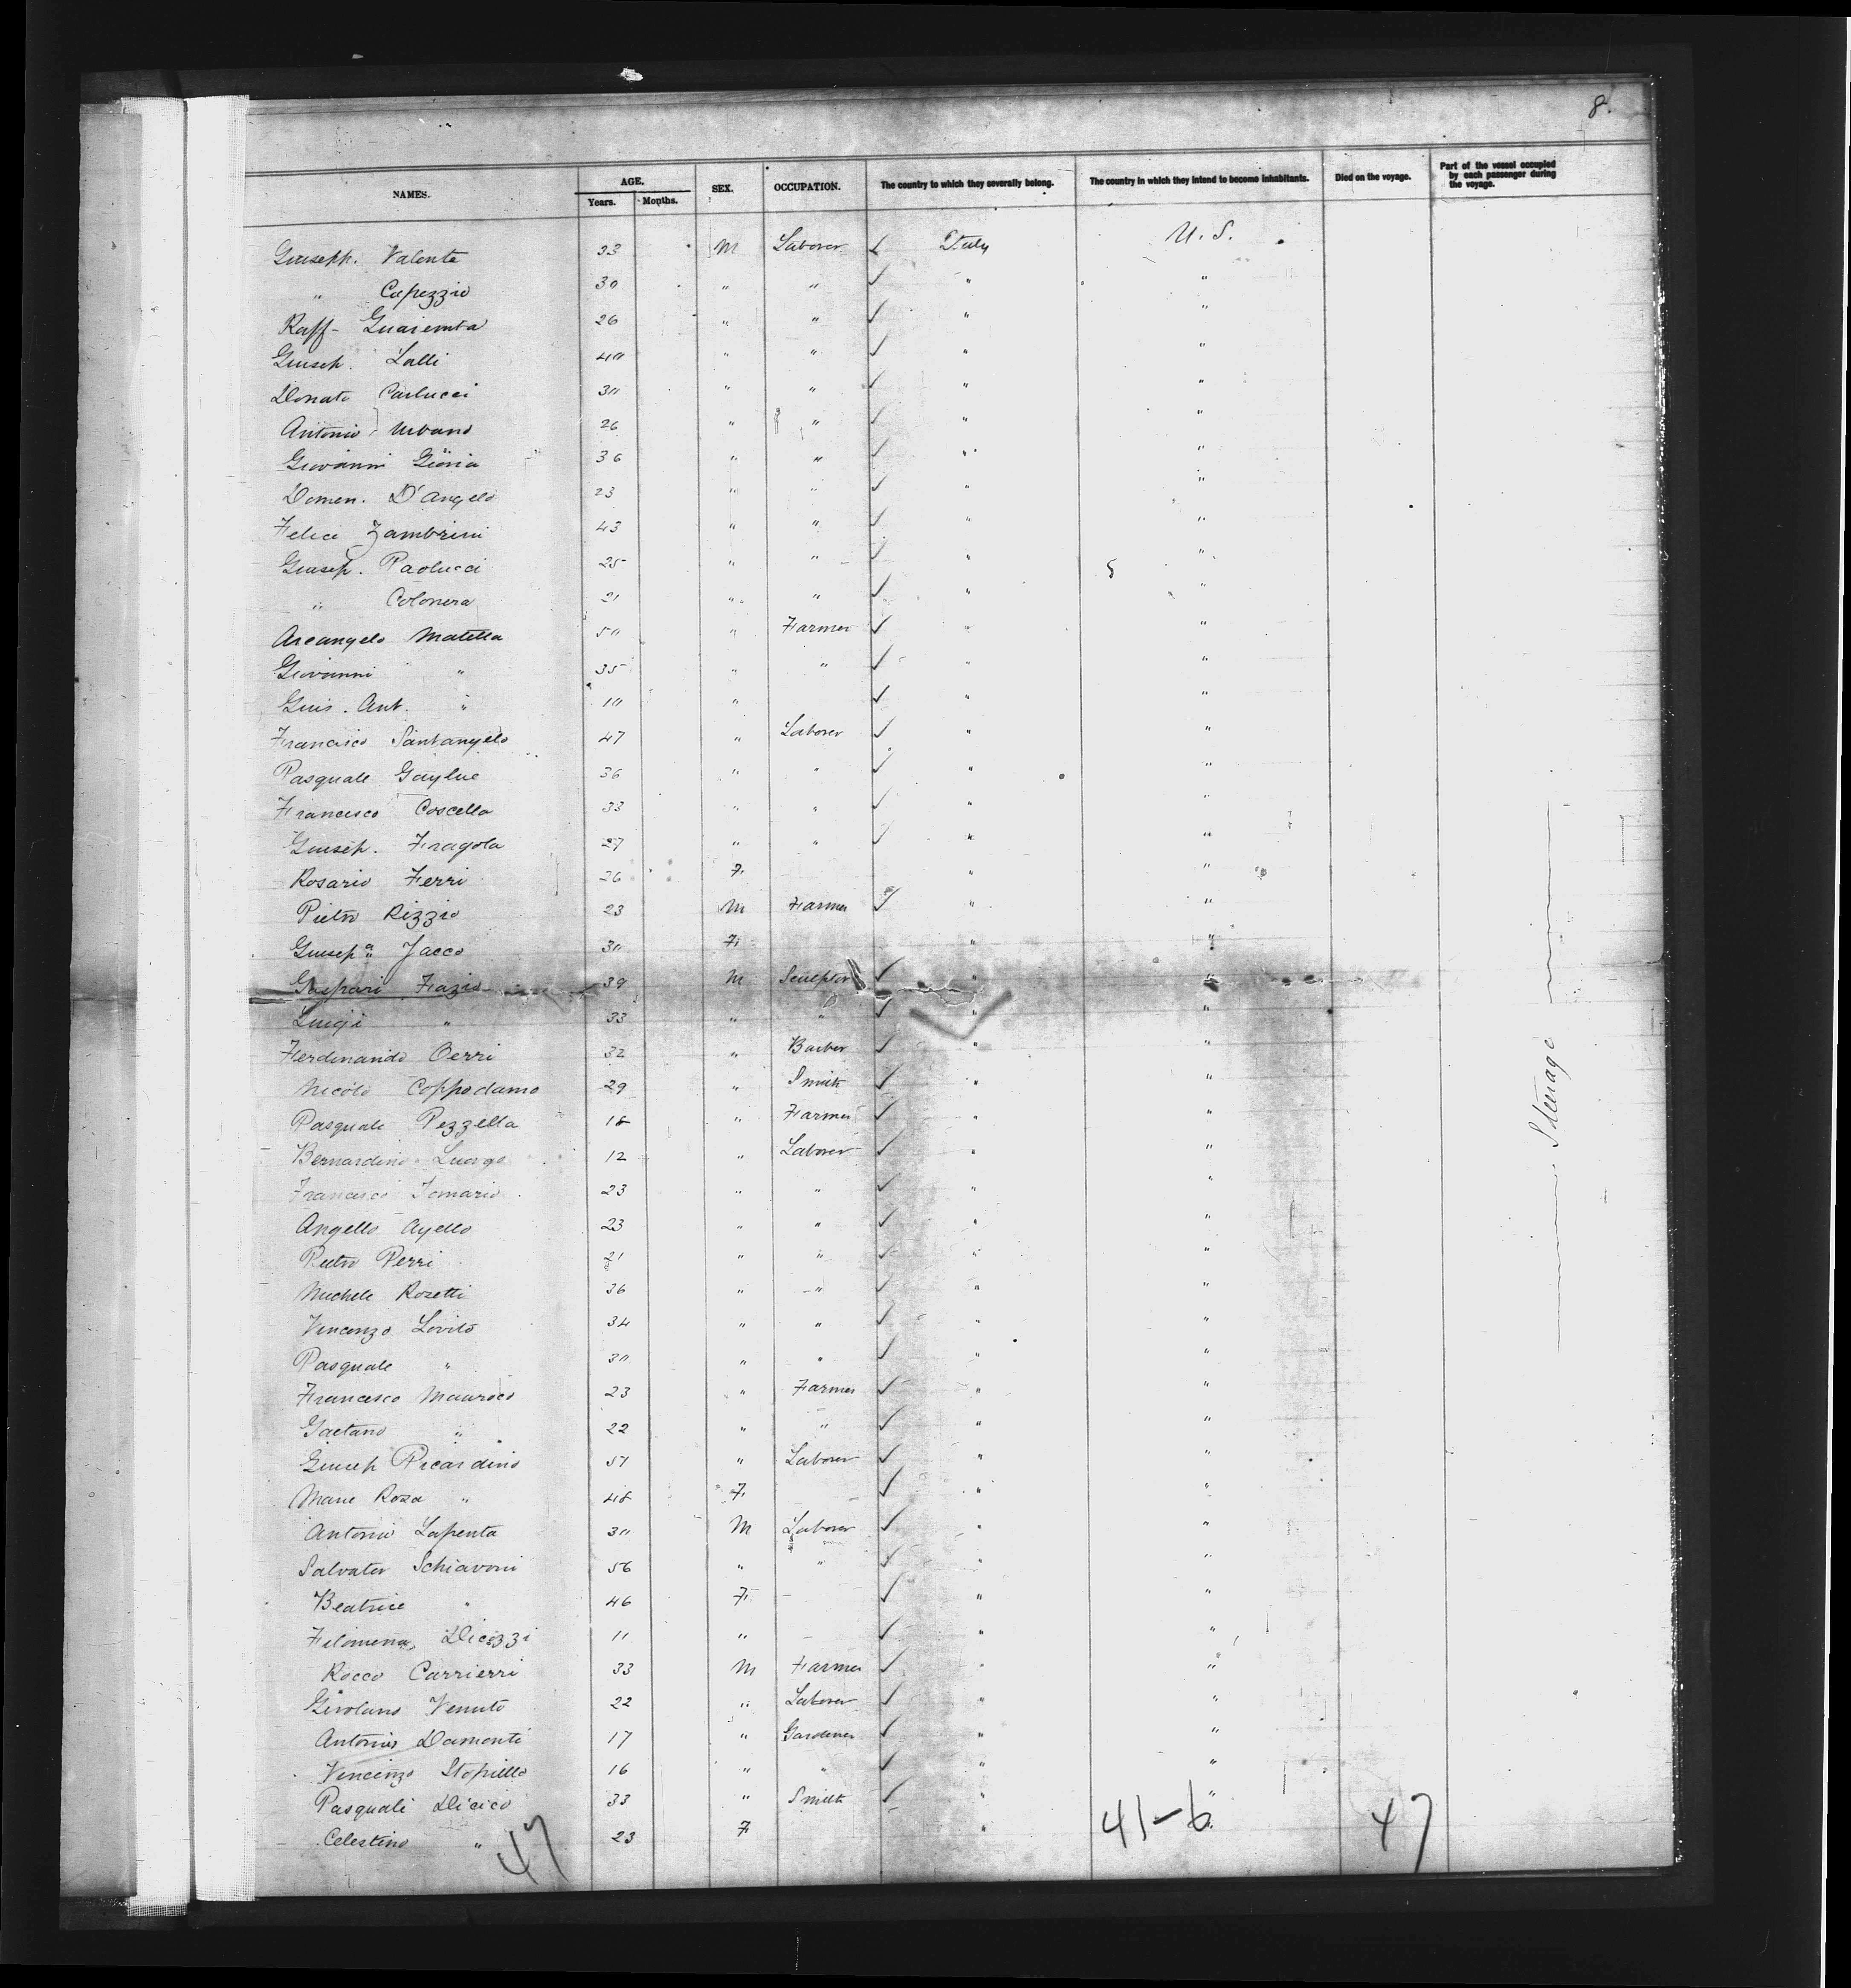 8.
NAMES. AGE. Years. Months. SEX. OCCUPATION. The country to which they severally belong. The country in which they intend to become inhabitants. Died on the voyage. Part of the vessel occupied by each passenger during the voyage.
Giuseph. Valente 33 M Laborer ✓ Italy U.S.
" Capezzio 30 " " ✓ " "
Raff- 26 " " ✓ " "
Giusep. Lalli 40 " " ✓ " "
Donato Carlucci 30 " " ✓ " "
Antonio Urbano 26 " " ✓ " "
Giovanni Gioria 36 " " ✓ " "
Domen. D'Angelo 23 " " ✓ " "
Felice Zambrini 43 " " ✓ " "
Giusep. Paolucci 25 " " ✓ " "
" Colonera 21 " " ✓ " "
Arcangelo Matella 50 " Farmer ✓ " "
Giovanni " 35 " " ✓ " "
Guis. Ant. " 10 " ✓ " "
Francisco Santangelo 47 " Laborer ✓ " "
Pasquale 36 " " ✓ " "
Francisco Coscella 33 " " ✓ " "
Giusep. Fragola 27 " " ✓ " "
Rosario Ferri 26 F. " "
Pietro Rizzio 23 M Farmer ✓ " "
Giusepa Jacco 30 F. " "
Gaspari Fazio 39 M Sculptor ✓ " "
Luigi " 33 " " ✓ " "
Ferdinando Oerri 32 " Barber ✓ " "
Nicolo Coppodamo 29 " Smith ✓ " "
Pasquale Pezzella 18 " Farmer ✓ " "
Bernardino Luongo 12 " Laborer ✓ " "
Francisco Tomario 23 " " ✓ " "
Angello Ayello 23 " " ✓ " "
Pietro Perri 21 " " ✓ " "
Michele Rosetti 36 " " ✓ " "
Vincenzo Lovito 34 " " ✓ " "
Pasquale " 30 " " ✓ " "
Francesco Mauroco 23 " Farmer ✓ " "
Gaetano " 22 " " ✓ " "
Giusep Picardino 51 " Laborer ✓ " "
Marie Rosa " 48 F. ✓ " "
Antonio Lapenta 30 M Laborer ✓ " "
Salvator Schiavoni 56 " " ✓ " "
Beatrice " 46 F. ✓ " "
Filomena Dicozzi 11 " ✓ " "
Rocco Carrierri 33 M Farmer ✓ " "
Girolano Venuto 22 " Laborer ✓ " "
Antonio Damonti 17 " Gardener ✓ " "
Vincenzo Stopiello 16 " " ✓ " "
Pasquali Dicico 33 " Smith ✓ " "
Celestino " 23 F "
Steerage
47 41-6 47